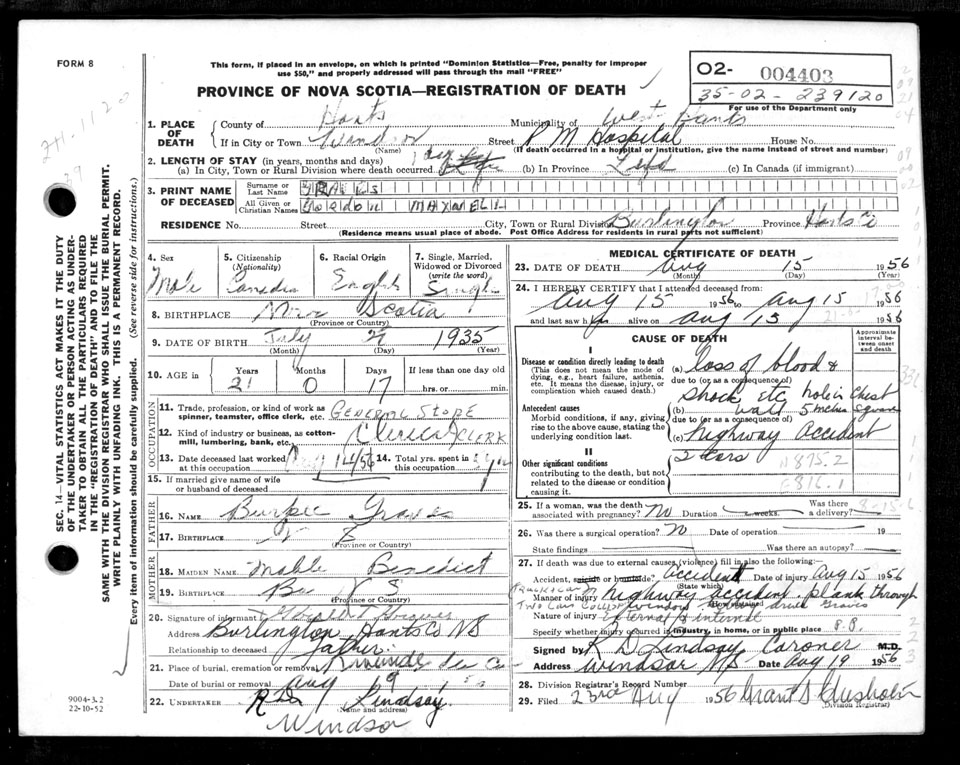 FORM 8
This form, if placed in an envelope, on which is printed "Dominion Statistics—Free, penalty for improper
use $50," and properly addressed will pass through the mail "FREE"
PROVINCE OF NOVA SCOTIA—REGISTRATION OF DEATH
02- 004403
35-02-239120
For use of the Department only
SEC. 14—VITAL STATISTICS ACT MAKES IT THE DUTY
OF THE UNDERTAKER OR PERSON ACTING AS UNDER-
TAKER TO OBTAIN ALL THE PARTICULARS REQUIRED
IN THE "REGISTRATION OF DEATH" AND TO FILE THE
SAME WITH THE DIVISION REGISTRAR WHO SHALL ISSUE THE BURIAL PERMIT.
WRITE PLAINLY WITH UNFADING INK. THIS IS A PERMANENT RECORD.
Every item of information should be carefully supplied. (See reverse side for instructions.)
1. PLACE OF DEATH
County of Hants Municipality of West Hants
If in City or Town Windsor Street P M Hospital House No.
(Name) (If death occurred in a hospital or institution, give the name instead of street and number)
2. LENGTH OF STAY (in years, months and days)
(a) In City, Town or Rural Division where death occurred 1 day (b) In Province Life (c) In Canada (if immigrant)
3. PRINT NAME OF DECEASED
Surname or Last Name GRAVES
All Given or Christian Names Gordon MAXWELL
RESIDENCE No. Street City, Town or Rural Division Burlington Province Hants Co
(Residence means usual place of abode. Post Office Address for residents in rural parts not sufficient)
4. Sex
Male
5. Citizenship (Nationality)
Canadia
6. Racial Origin
English
7. Single, Married, Widowed or Divorced (write the word)
Single
8. BIRTHPLACE Nova Scotia
(Province or Country)
9. DATE OF BIRTH July 1935
(Month) (Day) (Year)
10. AGE in Years Months Days If less than one day
21 0 17 hrs. or min.
OCCUPATION
11. Trade, profession, or kind of work as spinner, teamster, office clerk, etc. General Store
12. Kind of industry or business, as cotton-mill, lumbering, bank, etc. Clerk CLERK
13. Date deceased last worked at this occupation Aug 14/56 14. Total yrs. spent in this occupation
15. If married give name of wife or husband of deceased
FATHER
16. NAME Burpee Graves
17. BIRTHPLACE N S
(Province or Country)
MOTHER
18. MAIDEN NAME Mable Benedict
19. BIRTHPLACE N S
(Province or Country)
20. Signature of informant
Address Burlington Hants Co NS
Relationship to deceased Father
21. Place of burial, cremation or removal Riverside
Date of burial or removal Aug
22. UNDERTAKER Lindsay
(Name and address)
Windsor
9004-3.2
22-10-52
MEDICAL CERTIFICATE OF DEATH
23. DATE OF DEATH Aug 15 1956
(Month) (Day) (Year)
24. I HEREBY CERTIFY that I attended deceased from:
Aug 15 1956 to Aug 15 1956
and last saw h alive on Aug 15 1956
CAUSE OF DEATH
Approximate interval between onset and death
I
Disease or condition directly leading to death
(This does not mean the mode of dying, e.g., heart failure, asthenia, etc. It means the disease, injury, or complication which caused death.)
(a) loss of blood &
due to (or as a consequence of)
shock etc hole in chest
Antecedent causes
Morbid conditions, if any, giving rise to the above cause, stating the underlying condition last.
(b) wall 5 inches square
due to (or as a consequence of)
(c) highway accident
2 cars
II
Other significant conditions
contributing to the death, but not related to the disease or condition causing it.
N 875.2
E 816.1
25. If a woman, was the death associated with pregnancy? No Duration weeks. Was there a delivery?
26. Was there a surgical operation? No Date of operation 19
State findings Was there an autopsy?
27. If death was due to external causes (violence) fill in also the following:
Accident, suicide or homicide? accident Date of injury Aug 15 1956
(State which)
Manner of injury highway accident. plank through
Two Cars
Nature of injury External & internal
Specify whether injury occurred in industry, in home, or in public place P.P.
Signed by K D Lindsay Coroner M.D.
Address Windsor NS Date Aug 19 1956
28. Division Registrar's Record Number
29. Filed 23rd Aug 1956
(Division Registrar)